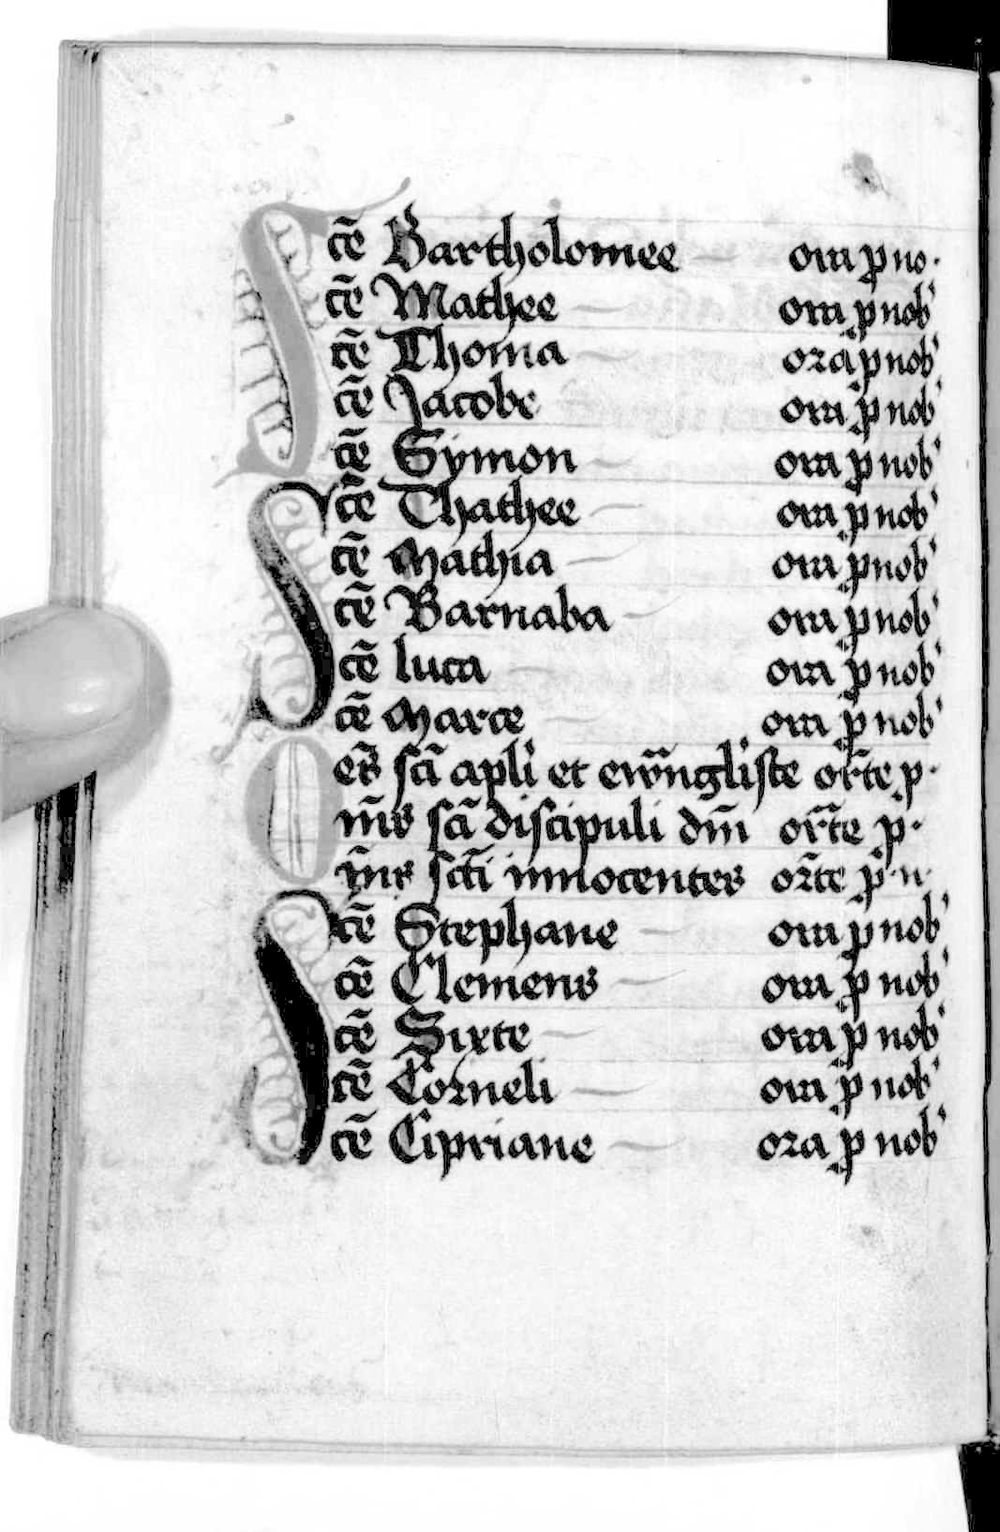 Sc̄e Bartholomee ora p no.
c̄e Mathee ora p nob'
c̄e Thoma ora p nob'
c̄e Jacobe ora p nob'
c̄e Symon ora p nob'
Sc̄e Thathee ora p nob'
c̄e Mathia ora p nob'
c̄e Barnaba ora p nob'
c̄e luca ora p nob'
c̄e Marce ora p nob'
Oēs sc̄i apl'i et ewn̄gliste or̄te p.
m̄s sc̄i discipuli dn̄i or̄te p.
m̄s sct̄i innocentes or̄te p n
Sc̄e Stephane ora p nob'
c̄e Clemens ora p nob'
c̄e Sixte ora p nob'
c̄e Corneli ora p nob'
c̄e Cipriane ora p nob'